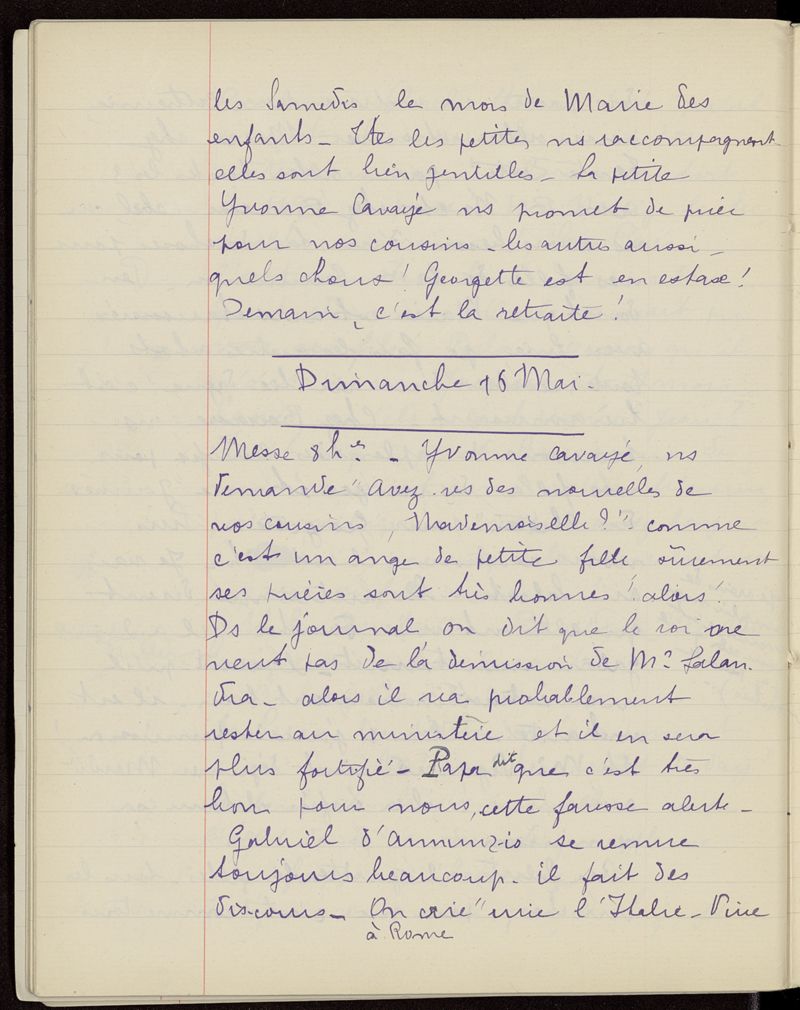 les Samedis le mois de Marie des
enfants - Ttes les petites ns raccompagnent
elles sont bien gentilles - La petite
Yvonne Cavayé ns promet de prier
pour nos cousins - les autres aussi -
quels choux ! Georgette est en extase !
Demain, c'est la retraite !
Dimanche 16 Mai.
Messe 8 hes. - Yvonne Cavayé, ns
demande "Avez-vs des nouvelles de
vos cousins, Mademoiselle ?" comme
c'est un ange de petite fille sûrement
ses prières sont très bonnes ! alors !
Ds le journal on dit que le roi ne
veut pas de la démission de Mr Salan-
dra - alors il va probablement
rester au ministère et il en sera
plus fortifié - Papa dit que c'est très
bon pour nous, cette fausse alerte -
Gabriel d'Annunzio se remue
toujours beaucoup - il fait des
discours - On crie "vive l'Italie - Vive
à Rome